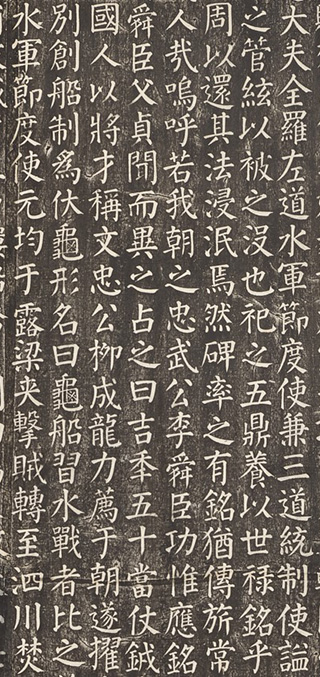 大夫全羅左道水軍節度使兼三道統制使謚
之管絃以被之没也祀之五鼎養以世祿銘乎
周以還其法浸泯焉然碑率之有銘猶傳旂常
人㢤嗚呼若我朝之忠武公李舜臣功惟應銘
舜臣父貞聞而異之占之曰吉秊五十當仗鉞
國人以將才稱文忠公柳成龍力薦于朝遂擢
別創船制爲伏龜形名曰龜船習水戰者比之
水軍節度使元均于露梁夾擊賊轉至泗川焚